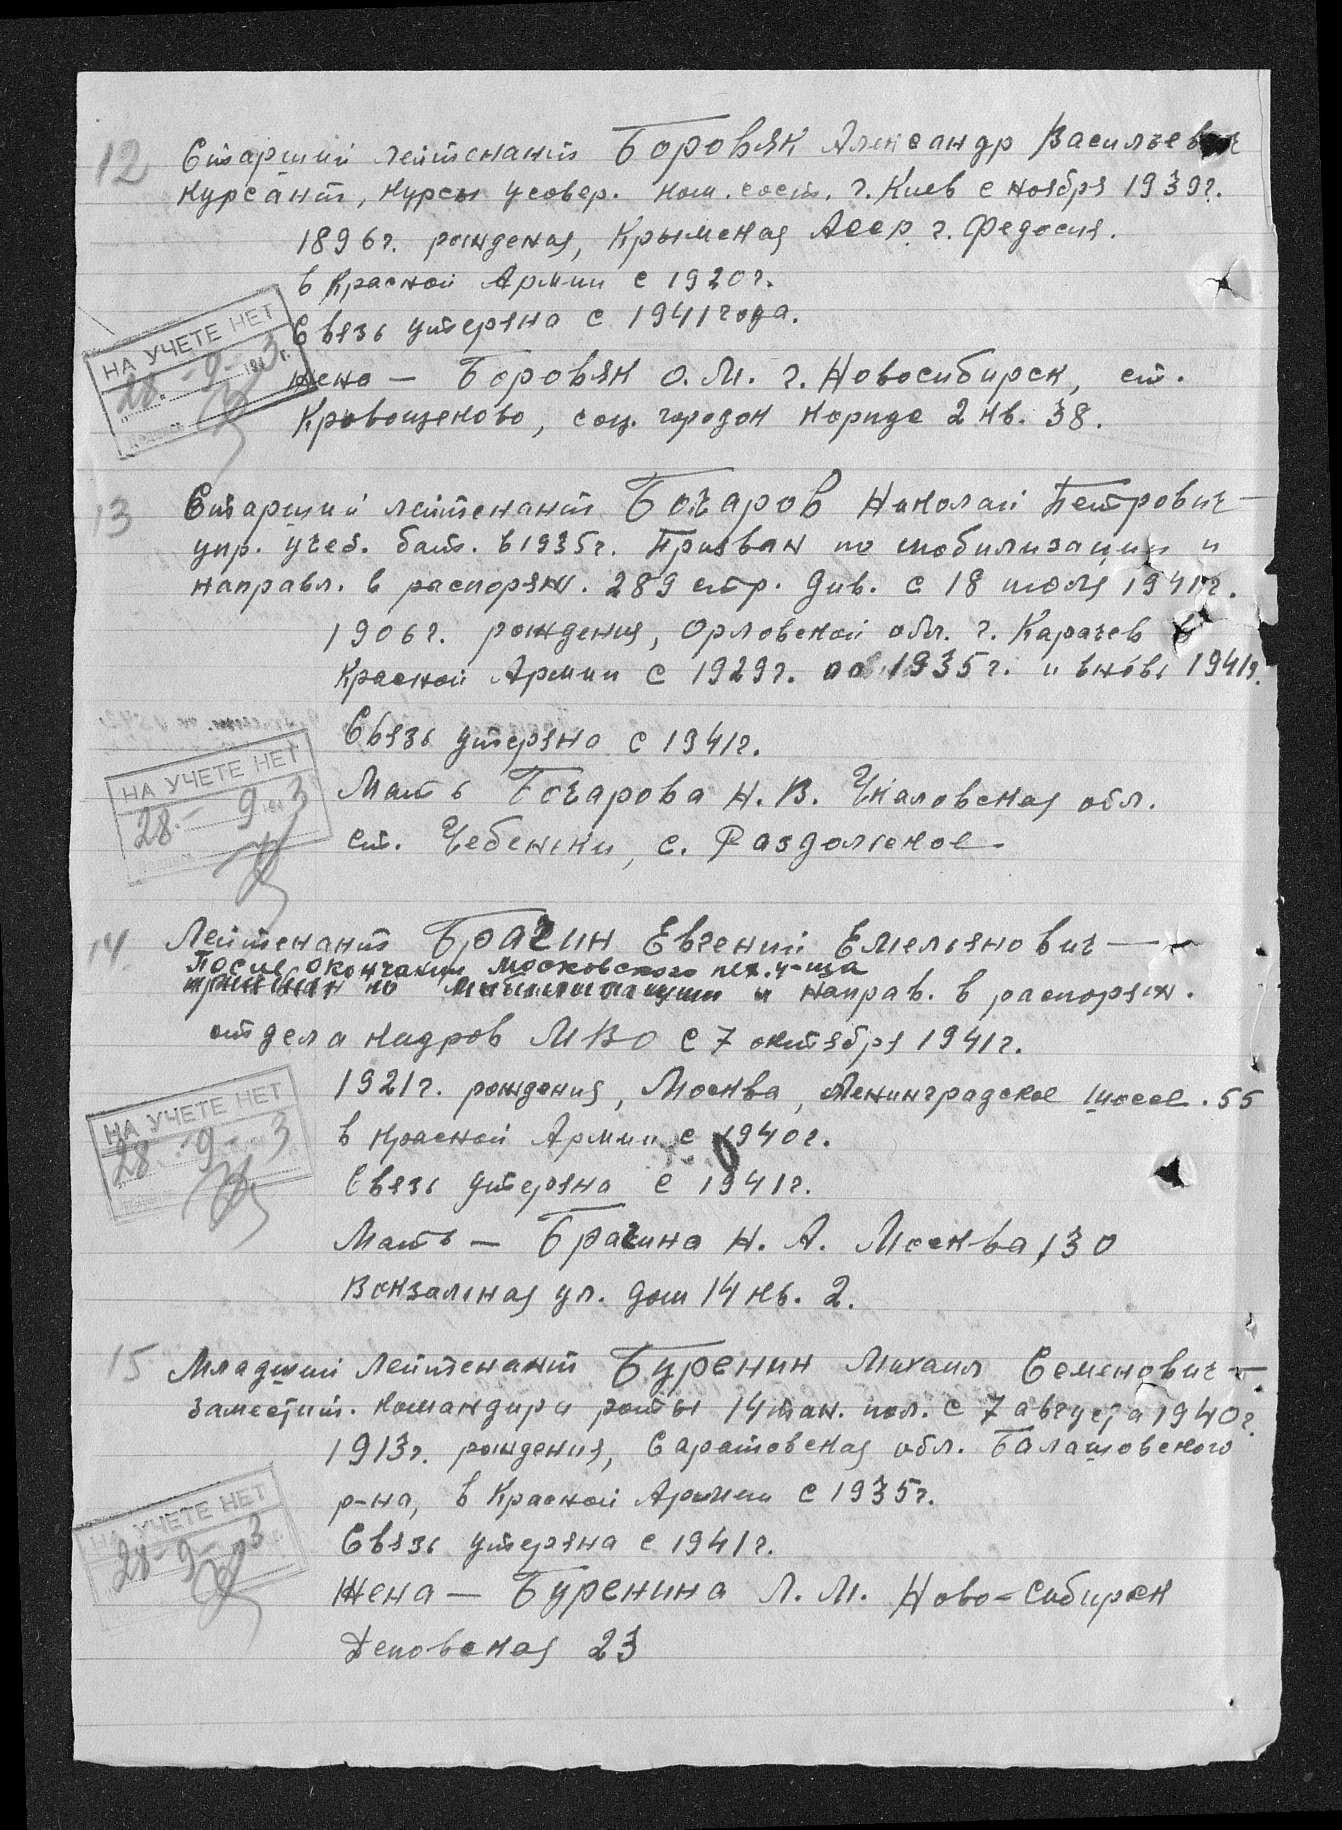 12 Старший лейтенант Боровяк Александр Васильевич
курсант, курсы усовер. ком. сост. г. Киев с ноября 1939г.
1896г. рождения, Крымская АССР г. Федосия.
в Красной Армии с 1920г.
Связь утеряна с 1941 года.
НА УЧЕТЕ НЕТ
28. - 9 - 3 г.
Жена — Боровяк О. М. г. Новосибирск, ст.
Кровощеково, соц. городок корпус 2 кв. 38.
13 Старший лейтенант Бочаров Николай Петрович —
упр. учеб. бат. в 1935г. Призван по мобилизации и
направл. в распоряж. 289 стр. див. с 18 июля 1941г.
1906г. рождения, Орловской обл. г. Карачев в
Красной Армии с 1929г. до 1935г. и вновь 1941г.
Связь утеряна с 1941г.
НА УЧЕТЕ НЕТ
28. - 9 3
Мать Бочарова Н. В. Чкаловская обл.
ст. Чебеньки, с. Раздольное.
14 Лейтенант Брагин Евгений Емельянович —
После окончания Московского пех. у-ща
призван по мобилизации и направ. в распоряж.
отдела кадров МВО с 7 октября 1941г.
1921г. рождения, Москва, Ленинградское шоссе. 55
НА УЧЕТЕ НЕТ
28 - 9 - 3
в Красной Армии с 1940г.
Связь утеряна с 1941г.
Мать — Брагина Н. А. Москва, 30
Вокзальная ул. дом 14 кв. 2.
15 Младший лейтенант Буренин Михаил Семенович —
заместит. командира роты 14 тан. пол. с 7 августа 1940г.
1913г. рождения, Саратовская обл. Балашовского
р-на, в Красной Армии с 1935г.
НА УЧЕТЕ НЕТ
28 - 9 - 3
Связь утеряна с 1941г.
Жена — Буренина Л. М. Ново-Сибирск
Деповская 23